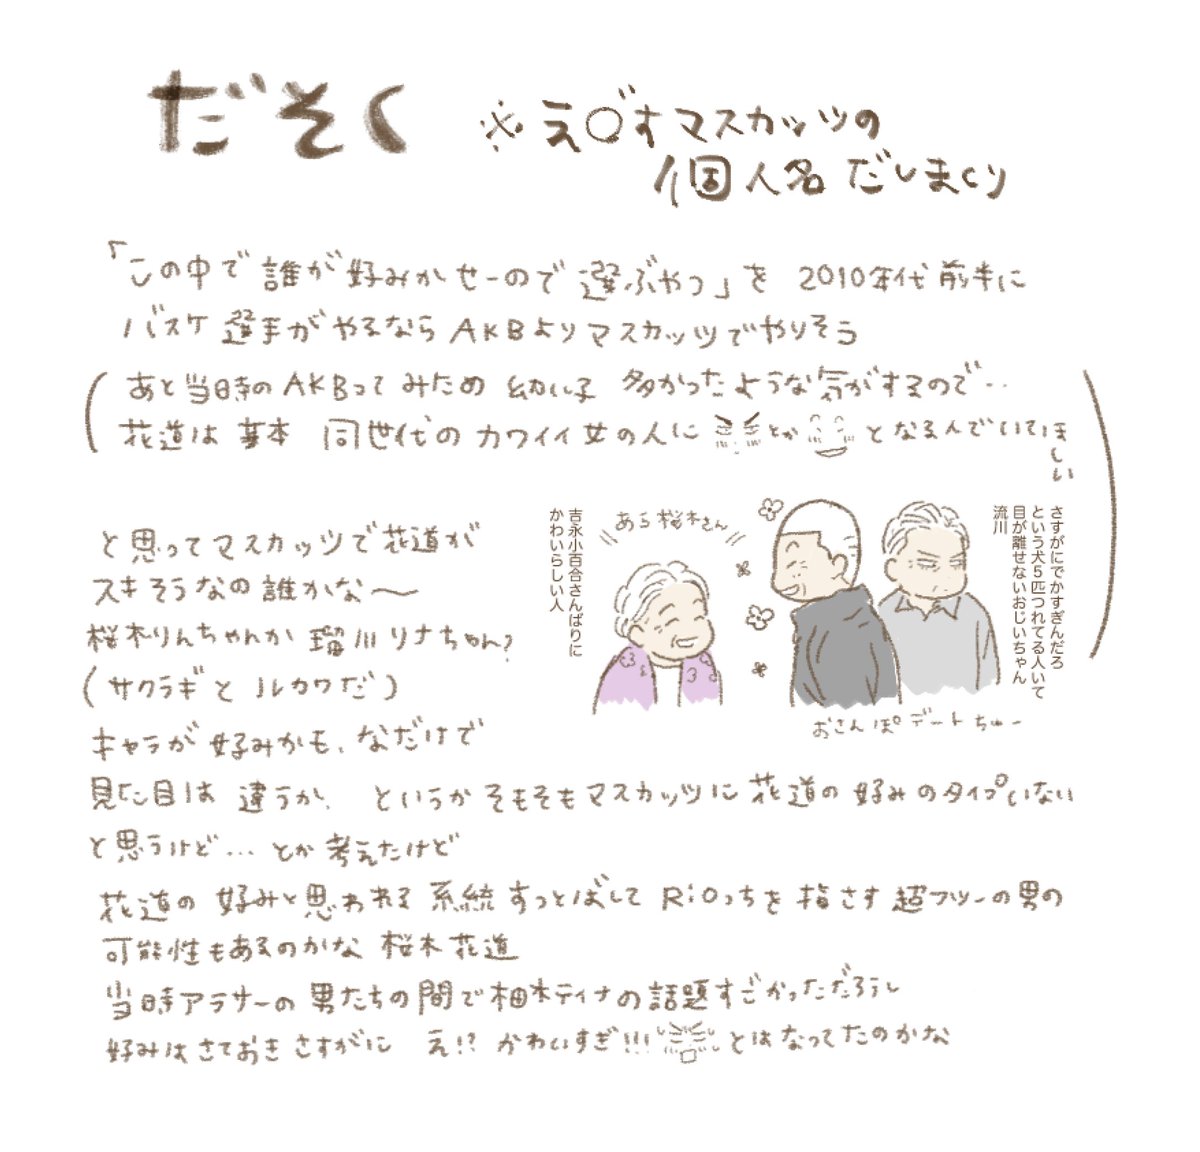 だそく
※え○"すマスカッツの
個人名だしまくり
「この中で誰が好みかせーので選ぶやつ」を 2010年代前半に
バスケ選手がやるならAKBよりマスカッツでやりそう
あと当時のAKBってみため幼い子 多かったような気がするので‥
花道は基本 同世代のカワイイ女の人に とか となるんでいてほしい
さすがにでかすぎんだろ
という犬5匹つれてる人いて
目が離せないおじいちゃん
流川
あら桜木さん
吉永小百合さんばりに
かわいらしい人
おさんぽデートちゅー
と思ってマスカッツで花道が
スキそうなの誰かな〜
桜木りんちゃんか 瑠川リナちゃん?
(サクラギとルカワだ)
キャラが好みかも、なだけで
見た目は違うか、というかそもそもマスカッツに花道の好みのタイプいない
と思うけど…とか考えたけど
花道の好みと思われる系統すっとばしてRioっちを指さす超フツーの男の
可能性もあるのかな 桜木花道
当時アラサーの男たちの間で柚木ティナの話題すごかっただろうし
好みはさておきさすがに え!? かわいすぎ!!! とはなってたのかな